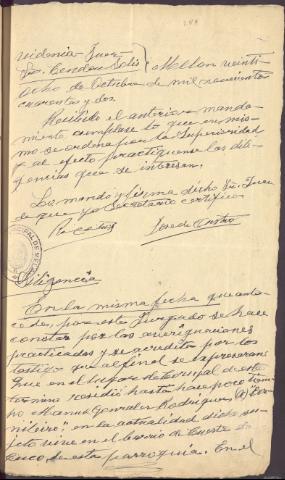 videncia Juez
Sr. Cendán Solis } Mellon veinti
ocho de Octubre de mil novecientos
cuarenta y dos
Recibido el anterior manda-
miento cumplase lo que en mis-
mo se ordena por la Superioridad
y al efecto practiquense las dili-
gencias que se interesan.
Lo mandó y firma dicho Sr. Juez
de que yo Secretario certifico
José de Castro
Diligencia
En la misma fecha que ante-
cede, por este Juzgado se hace
constar por las averiguaciones
practicadas y se acredita por los
testigos que al final se expresaran
que en el lugar de
termino residió hasta hace poco tiem-
po Manuel Gonzalez Rodriguez (a)
en la actualidad dicho su-
jeto vive en el barrio de Cuesta de
de esta parroquia. En el